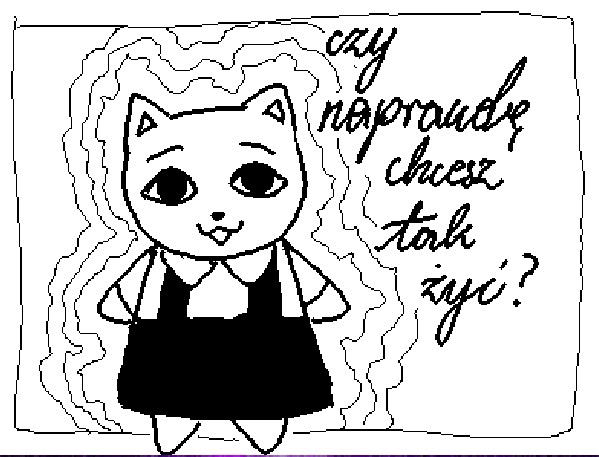 czy
naprawdę
chcesz
tak
żyć?